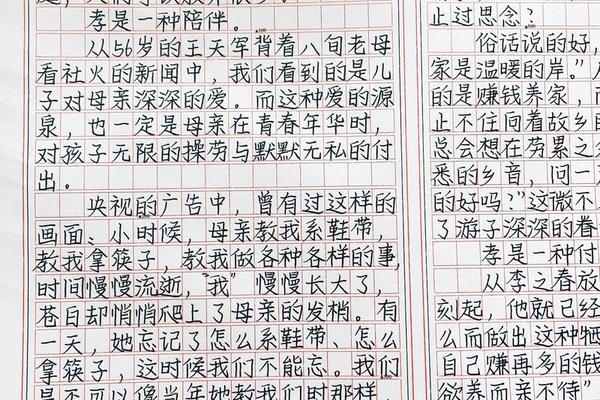 孝是一种陪伴。
从56岁的王天军背着八旬老母
看社火的新闻中，我们看到的是儿
子对母亲深深的爱。而这种爱的源
泉，也一定是母亲在青春年华时，
对孩子无限的操劳与默默无私的付
出。
央视的广告中，曾有过这样的
画面、小时候，母亲教我系鞋带，
教我拿筷子，教我做各种各样的事，
时间慢慢流逝，“我”慢慢长大了，
苍白却悄悄爬上了母亲的发梢。有
一天，她忘记了怎么系鞋带、怎么
拿筷子，这时候我们不能忘。我们
是不可以像当年她教我们时那样，
止过思念？
俗话说的好，
家是温暖的岸。”
的是赚钱养家，而
止不住向着故乡
总会想在劳累之
悉的乡音，问一
的好吗？”这微不
了游子深深的眷
孝是一种付
从李之春放
刻起，他就已经
么而做出这种牺
自己赚再多的钱
欲养而亲不待”